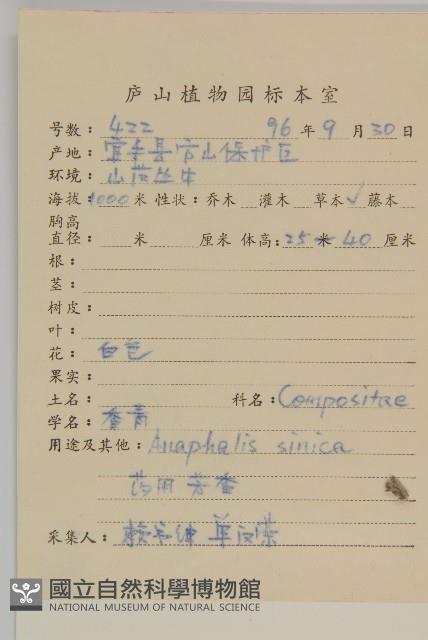 庐山植物园标本室
号数：422 96年9月30日
产地：宜丰县官山保护区
环境：山沟丛中
海拔：1000米 性状：乔木 灌木 草本✓ 藤本
胸高
直径： 米 厘米 体高：25米40厘米
根：
茎：
树皮：
叶：
花：白色
果实：
土名： 科名：Compositae
学名：香青
用途及其他：Anaphalis sinica
药用 芳香
采集人：赖书绅 单汉荣
國立自然科學博物館
NATIONAL MUSEUM OF NATURAL SCIENCE